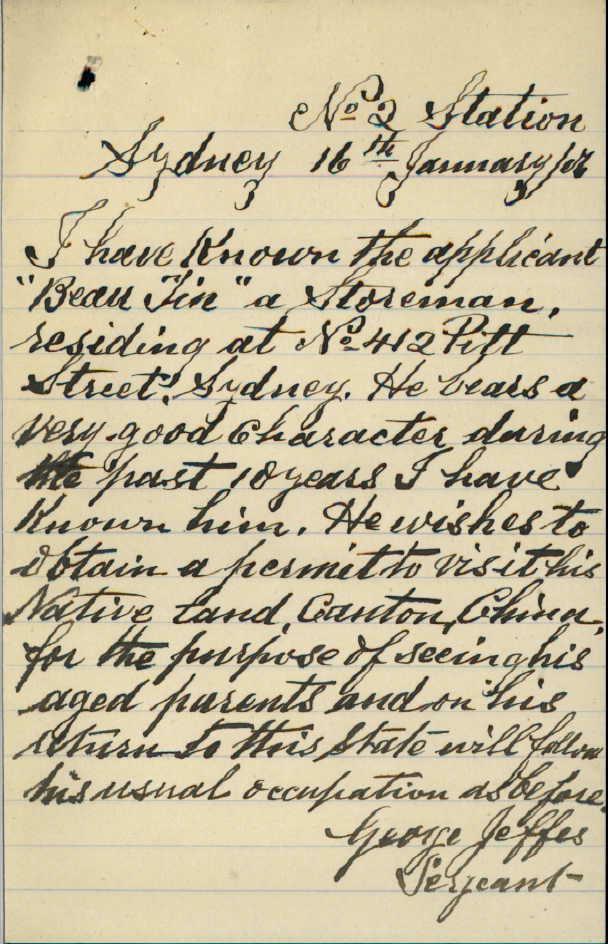 No 2 Station
Sydney 16th January/02
I have Known the applicant
"Beau Tin" a Storeman,
residing at No 412 Pitt
Street, Sydney. He bears a
very good Character during
the past 10 years I have
Known him. He wishes to
obtain a permit to visit his
Native Land, Canton, China,
for the purpose of seeing his
aged parents and on his
return to this State will follow
his usual occupation as before.
George Jeffes
Sergeant